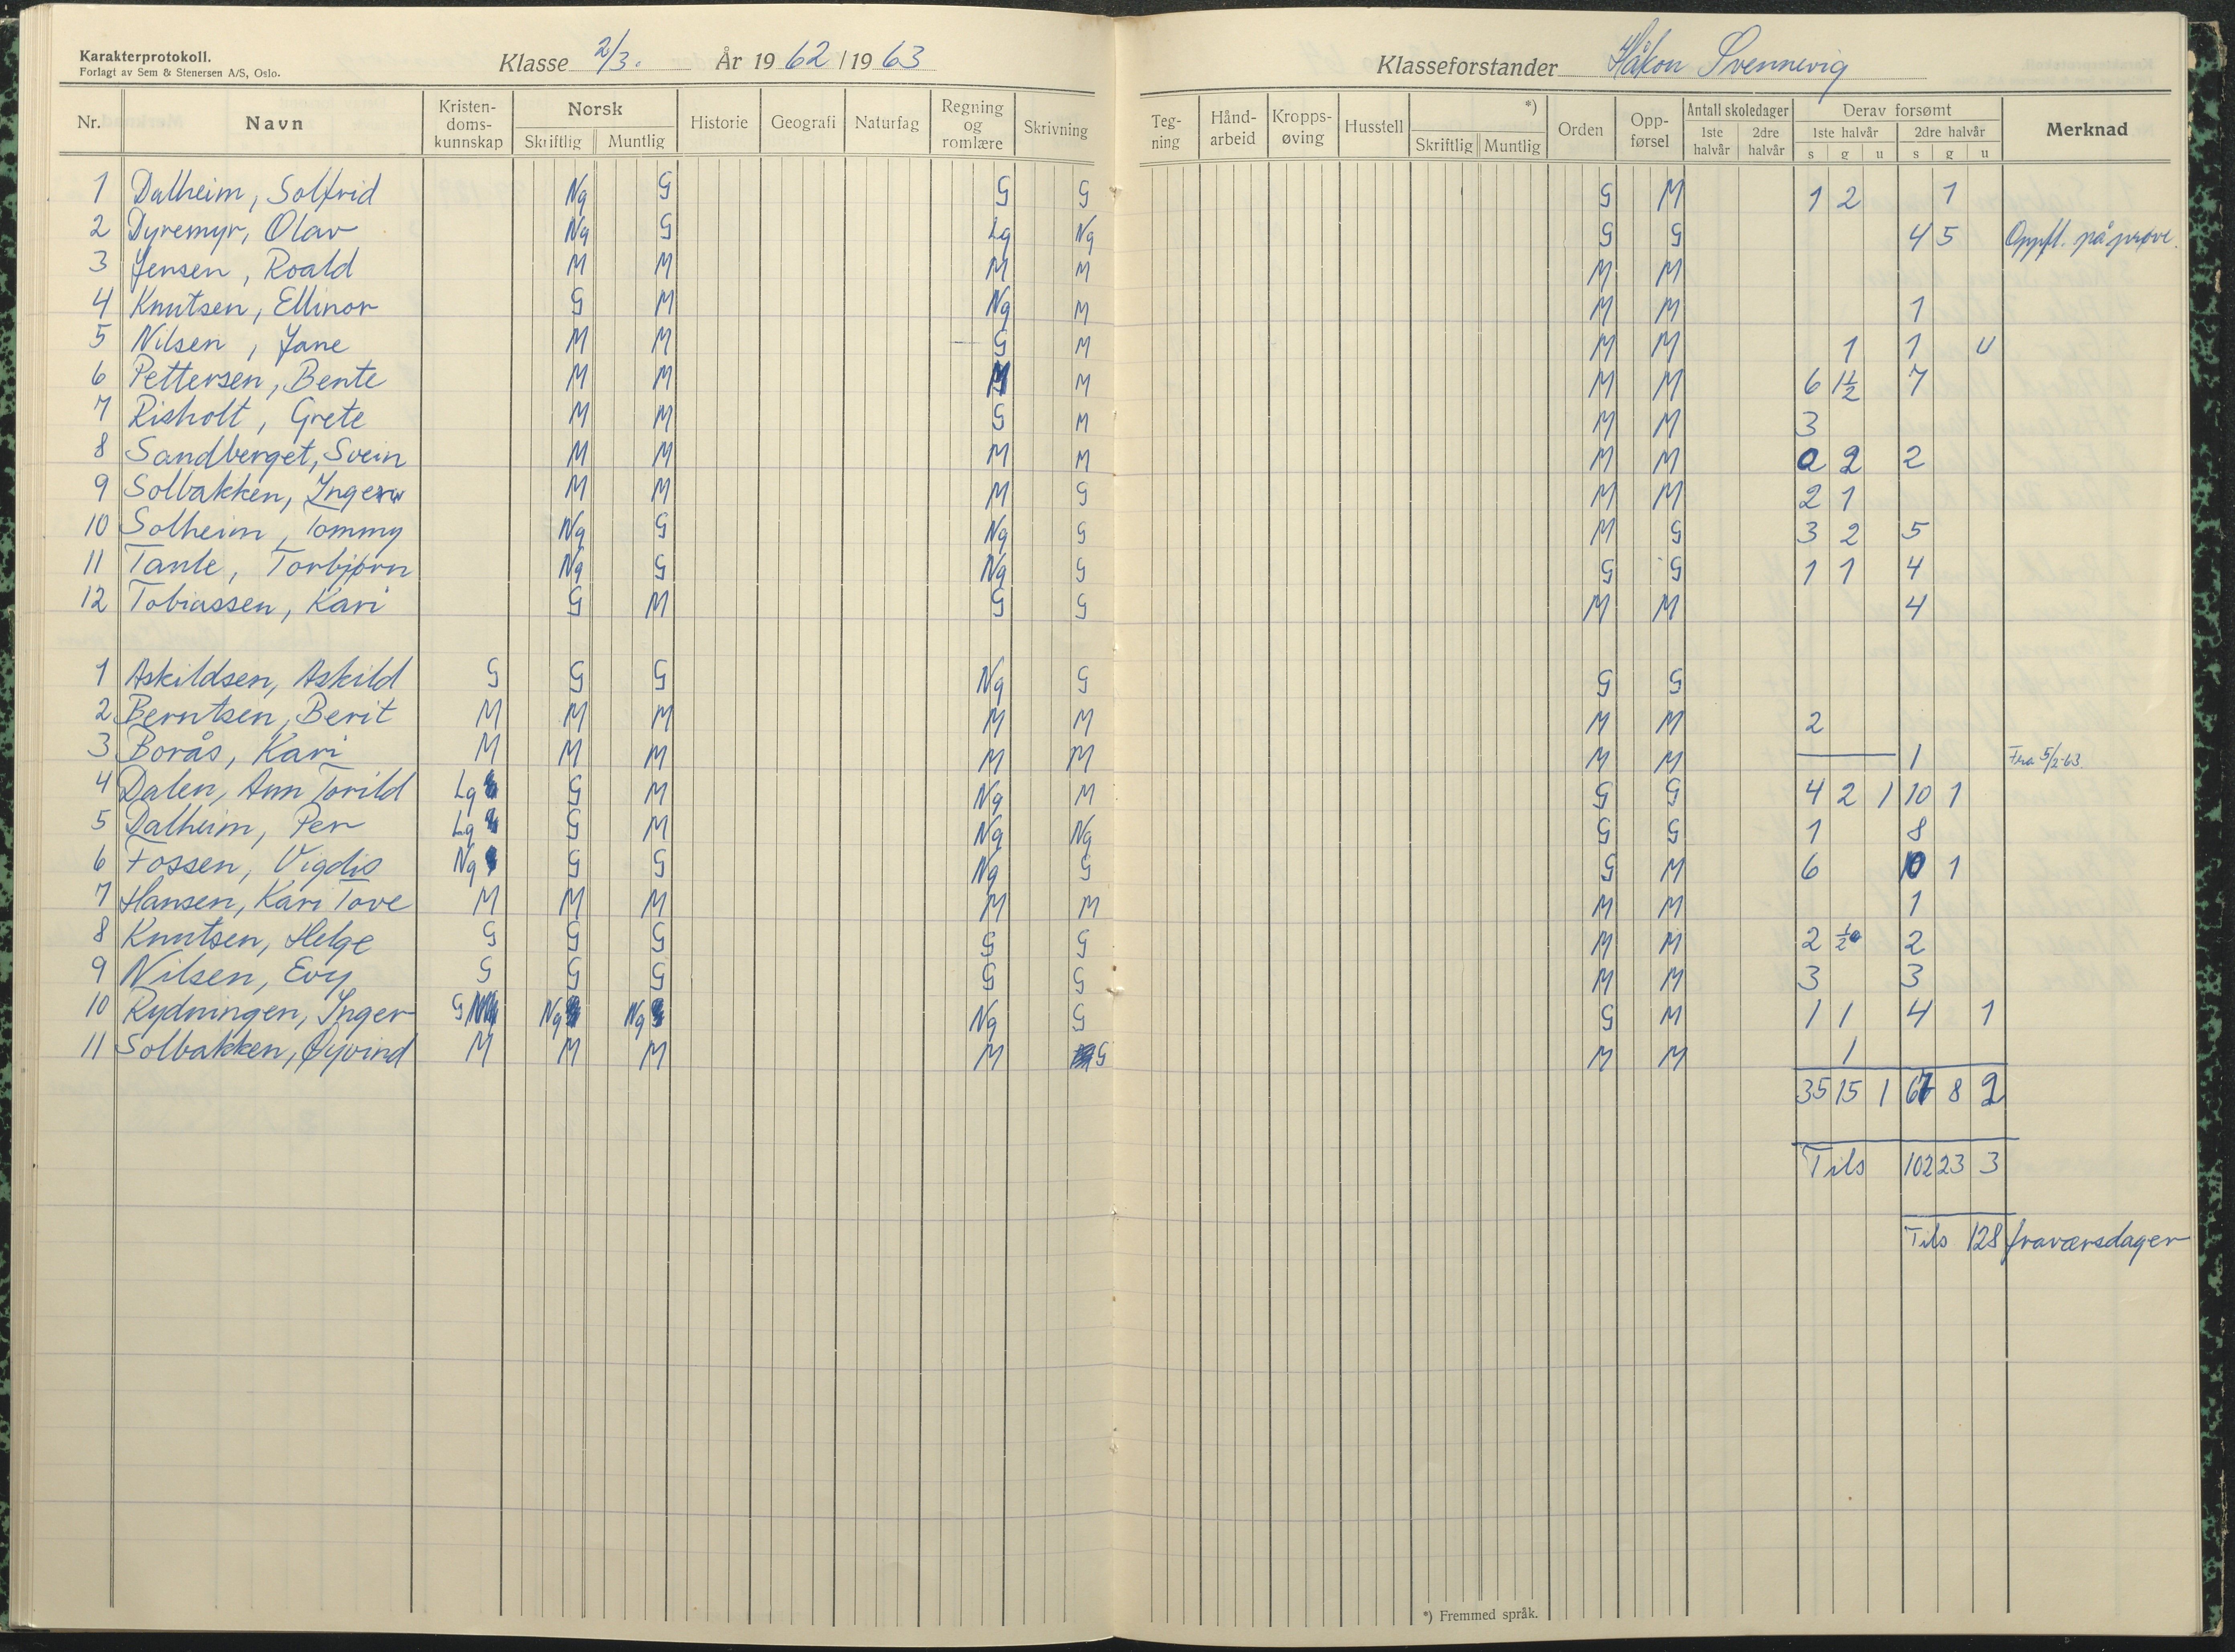 Karakterprotokoll.
Forlagt av Sem & Stenersen A/S, Oslo.
Klasse 2/3. År 1962/1963
Klasseforstander Håkon Svennevig
Nr. Navn Kristendomskunnskap Norsk Skriftlig Muntlig Historie Geografi Naturfag Regning og romlære Skrivning Tegning Håndarbeid Kroppsøving Husstell *) Skriftlig Muntlig Orden Oppførsel Antall skoledager 1ste halvår 2dre halvår Derav forsømt 1ste halvår s g u 2dre halvår s g u Merknad
1 Dalheim, Solfrid Ng G G G G M 1 2 1
2 Dyremyr, Olav Ng G Lg Ng G G 4 5 Oppfl. på prøve.
3 Jensen, Roald M M M M M M
4 Knutsen, Ellinor G M Ng M M M 1
5 Nilsen, Jane M M G M M M 1 1 u
6 Pettersen, Bente M M M M M M 6 1½ 7
7 Risholt, Grete M M G M M M 3
8 Sandberget, Svein M M M M M M 2 2 2
9 Solbakken, Inger M M M G M M 2 1
10 Solheim, Tommy Ng G Ng G M G 3 2 5
11 Tante, Torbjørn Ng G Ng G G G 1 1 4
12 Tobiassen, Kari G M G G M M 4
1 Askildsen, Askild G G G Ng G G G
2 Berntsen, Berit M M M M M M M 2
3 Borås, Kari M M M M M M M — 1 Fra 5/2-63.
4 Dalen, Ann Torild Lg G M Ng M G G 4 2 1 10 1
5 Dalheim, Per Lg G M Ng Ng G G 1 8
6 Fossen, Vigdis Ng G G Ng G G M 6 10 1
7 Hansen, Kari Tove M M M M M M M 1
8 Knutsen, Helge G G G G G M M 2 ½ 2
9 Nilsen, Evy G G G G G M M 3 3
10 Rydningen, Inger G Ng Ng Ng G G M 1 1 4 1
11 Solbakken, Øyvind M M M M G M M 1
35 15 1 67 8 2
Tils 102 23 3
Tils 128 fraværsdager
*) Fremmed språk.